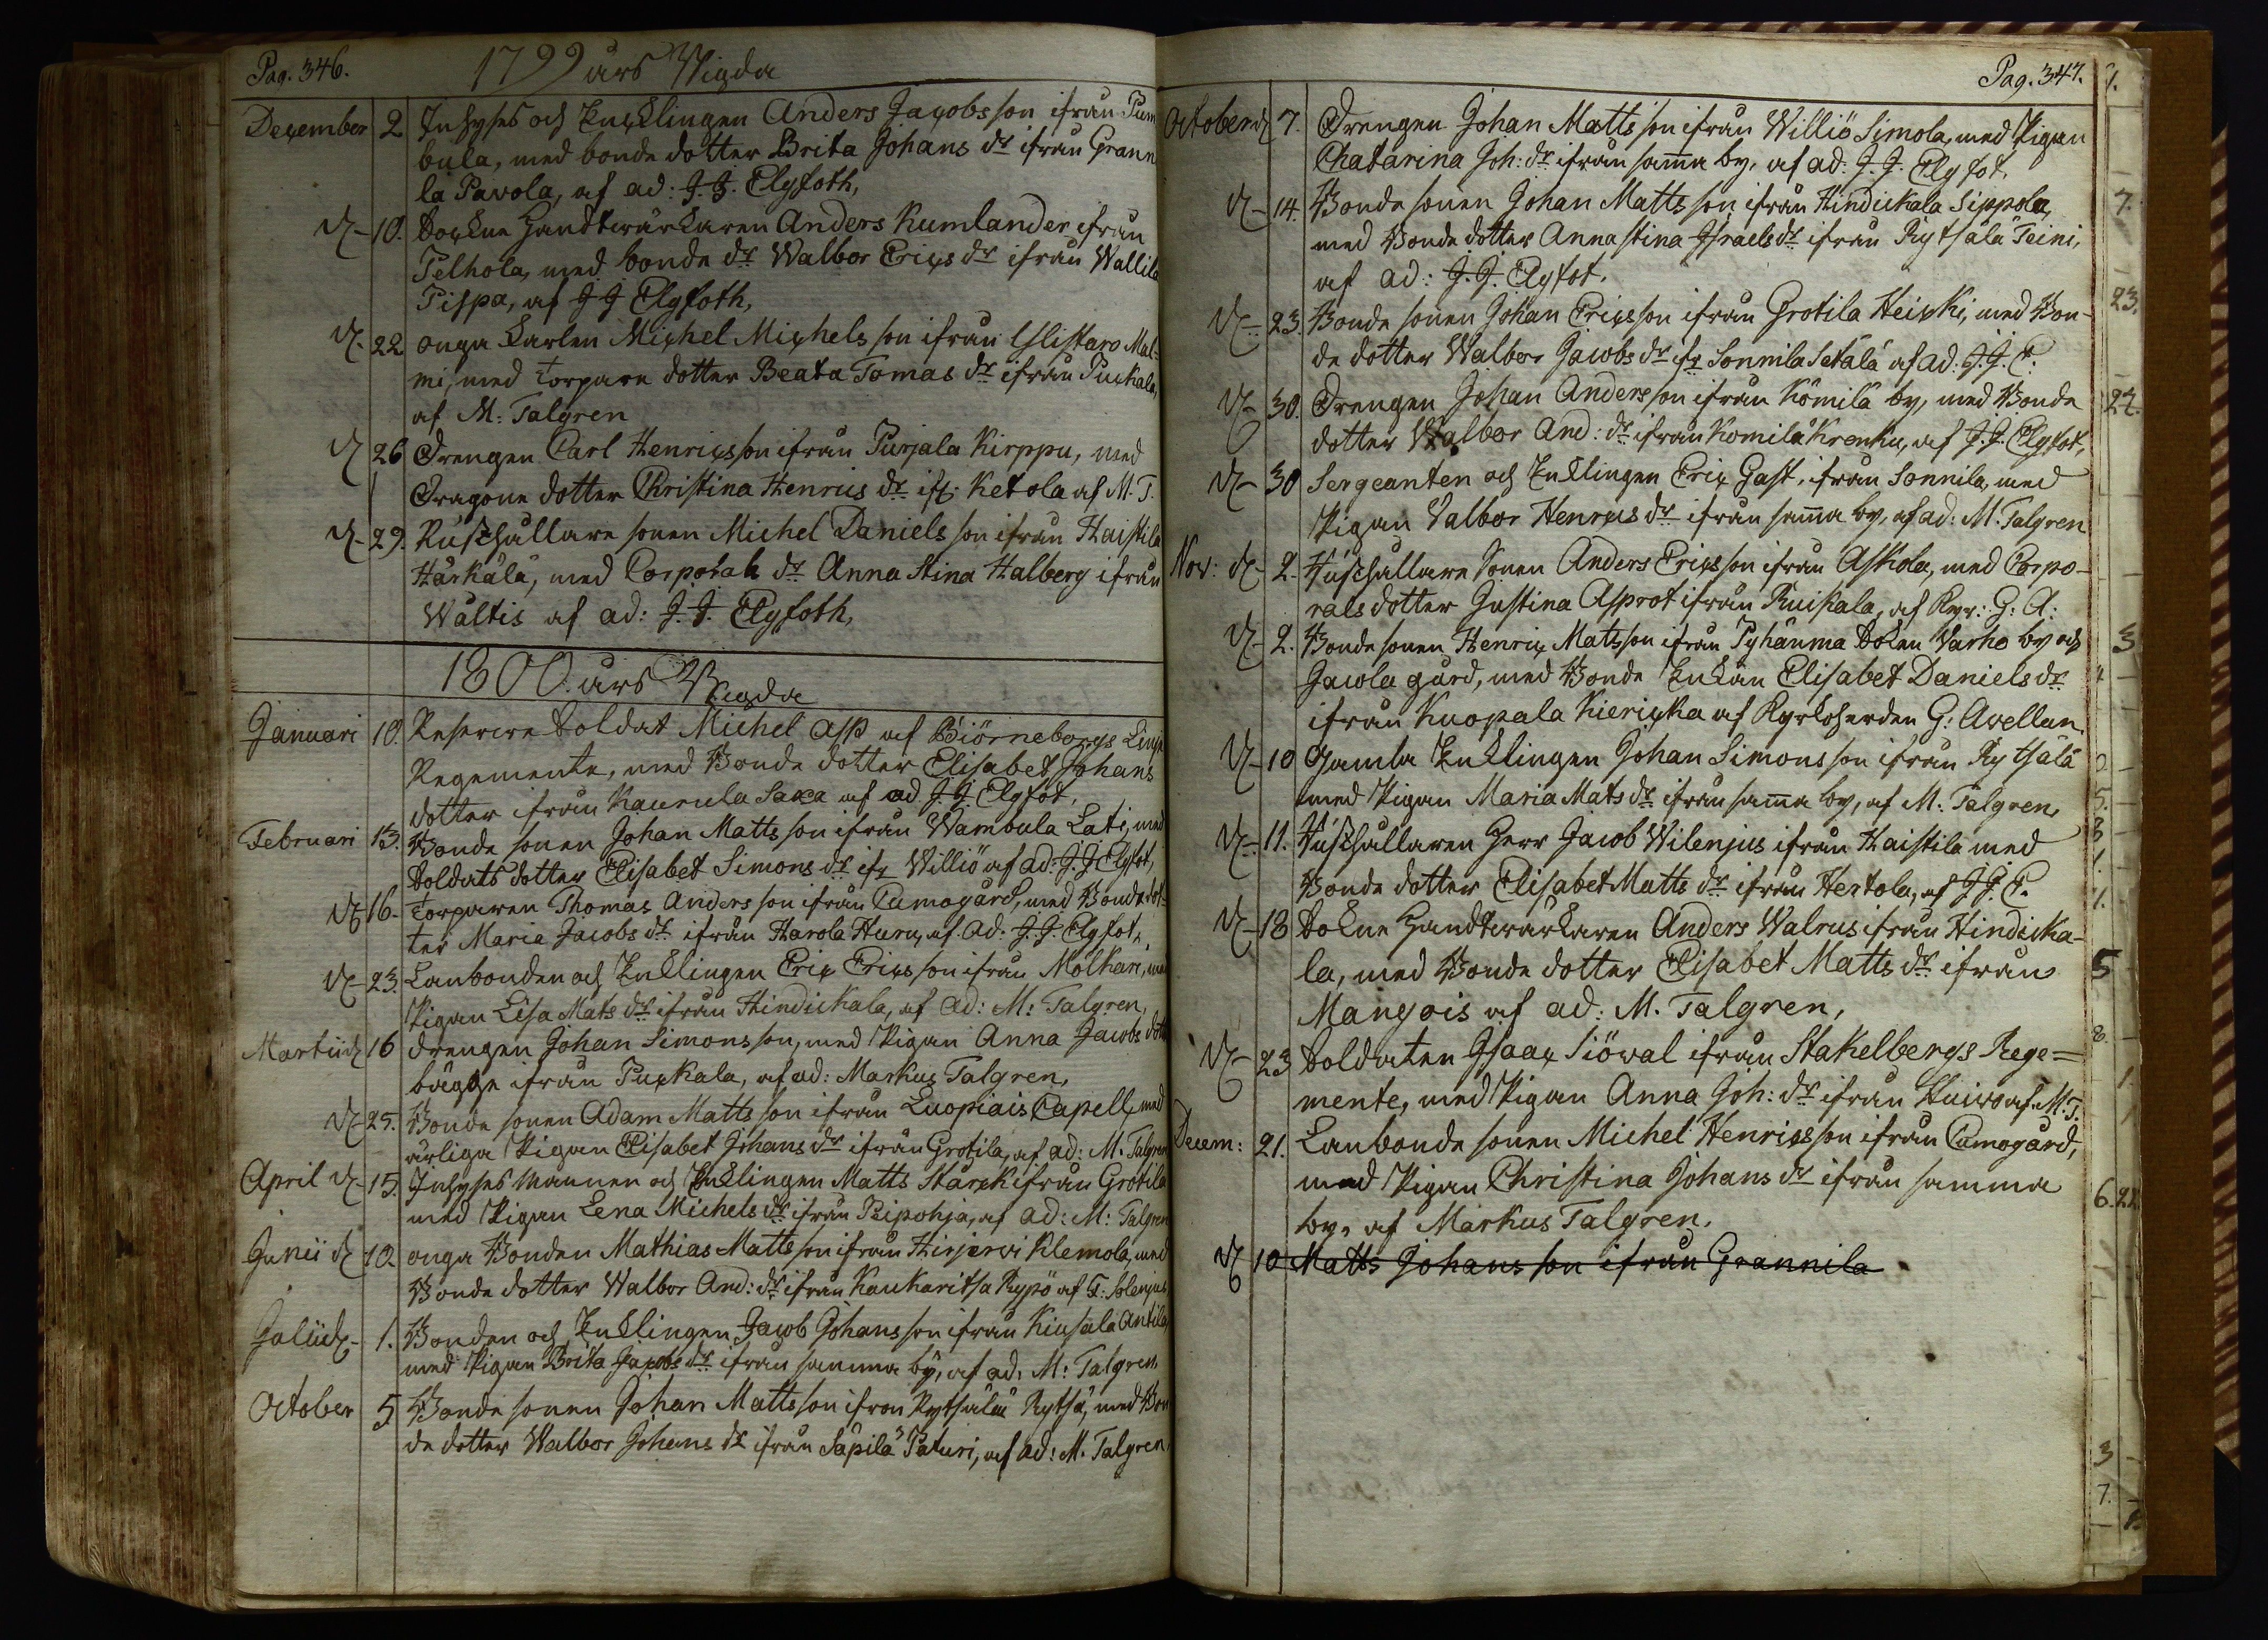 Pag. 346.
1799 års Wigda
December 2 Inhyses och Enklingen Anders Jacobs son ifrån Pum
bula, med bonde dotter Brita Johans dr ifrån Grann
la Pavola, af ad: J. J. Elgfoth,
d 10. Sockne Handtwärkaren Anders Kumlander ifrån
Pelhola, med bonde dr Walbor Erics dr ifrån Wallila
Pispa, af J J Elgfoth,
d 22 onga Karlen Michel Michels son ifrån Ylistaro Mal-
mi, med torpare dotter Beata Tomas dr ifrån Puckala,
af M: Talgren
d 26 Drengen Carl Henricsson ifrån Purjala Kirppu, med
Dragone dotter Christina Henrics dr ifr: Ketola af M. T.
d 29. Rusthållare sonen Michel Daniels son ifrån Haistila
Härkälä, med Corporals dr Anna Stina Halberg ifrån
Wältis af ad: J. J. Elgfoth,
1800. års Wigda
Januari 10. Reserve Soldat Michel Asp af Biörneborgs Linje
Regemente, med Bonde dotter Elisabet Johans
dotter ifrån Kaurula Saxa af ad J. J. Elgfot,
Februari 13. Bonde sonen Johan Matts son ifrån Wambula Lati, med
Soldats dotter Elisabet Simons dr ifr Williö af ad: J. J Elgfot,
d 16. torparen Thomas Anders son ifrån Cumogård, med Bonde dot-
ter Maria Jacobs dr ifrån Harola Huru, af ad: J. J. Elgfot,
d 23. Lanbonden och Enklingen Eric Ericsson ifrån Molkari, med
Pigan Lisa Mats dr ifrån Hindickala, af ad: M: Talgren,
Martii d 16 drengen Johan Simons son, med Pigan Anna Jacobs dott
bägge ifrån Puckala, af ad: Markus Talgren,
d 25. Bonde sonen Adam Matts son ifrån Luopiais Capell, med
ärliga Pigan Elisabet Johans dr ifrån Grotila, af ad: M. Talgren
April d 15. Inhyses Mannen och Enklingen Matts Starck ifrån Grotila
med Pigan Lena Michels dr ifrån Peipohja, af ad: M: Talgren
Junii d 12. onga Bonden Mathias Matts son ifrån Hirjervi Klemola, med
Bonde dotter Walbor And: dr ifrån Kaukaritsa Rypö af F: Polenius
Julii d 1. Bonden och Enklingen Jacob Johans son ifrån Kiusala Antila
med Pigan Brita Jacobs dr ifrån samma by, af ad, M: Talgren
October 5 Bonde sonen Johan Matts son ifron Rytsälä Rytsä, med Bon
de dotter Walbor Johans dr ifrån Säpilä Paturi, af ad: M. Talgren,
Pag. 347.
October d 7. Drengen Johan Matts son ifrån Williö Simola, med Pigan
Chatarina Joh: dr ifrån samma by, af ad: J. J. Elgfot.
d 14. Bonde sonen Johan Matts son ifrån Hindickala Sippola,
med Bonde dotter Anna Stina Israels dr ifrån Rytsälä Teini,
af ad: J. J. Elgfot.
d 23. Bonde sonen Johan Ericsson ifrån Grotila Heicki, med Bon-
de dotter Walbor Jacobs dr ifr Sonnila Setälä af ad: J. J. E.
d 30. Drengen Johan Anders son ifrån Kömilä by, med Bonde
dotter Walbor And: dr ifrån Komilä Krenku, af J. J. Elgfot,
d 30 Sergeanten och Enklingen Eric Gast, ifrån Sonnila, med
Pigan Valbor Henrics dr ifrån samma by, af ad: M. Talgren
Nov: d 2. Rusthållare Sonen Anders Ericsson ifrån Askola, med Corpo-
rals dotter Justina Asprot ifrån Ruikala, af Kyr: G: A:
d 2. Bonde sonen Henric Matts son ifrån Pyhäuma Soken Varho by och
Jacola gård, med Bonde Enkan Elisabet Daniels dr
ifrån Kuopala Kiericka af Kyrkoherden G: Avellan.
d 10 Gamla Enklingen Johan Simons son ifrån Rytsälä
med Pigan Maria Mats dr ifrån samma by, af M: Talgren,
d 11. Rusthållaren Herr Jacob Wilenjus ifrån Haistila med
Bonde dotter Elisabet Matts dr ifrån Hertola, af J J. E.
d 18 Sokne Handtwärkaren Anders Walrus ifrån Hindicka-
la, med Bonde dotter Elisabet Matts dr ifrån
Mangois af ad: M. Talgren,
d 23 Soldaten Isaac Siöwal ifrån Stakelbergs Rege=
mente, med Pigan Anna Joh: dr ifrån Huiwo af M. T.
Decem: 21. Lanbonde sonen Michel Henricsson ifrån Cumogård,
med Pigan Christina Johans dr ifrån samma
by, af Markus Talgren.
d 10 Matts Johans son ifrån Grannila